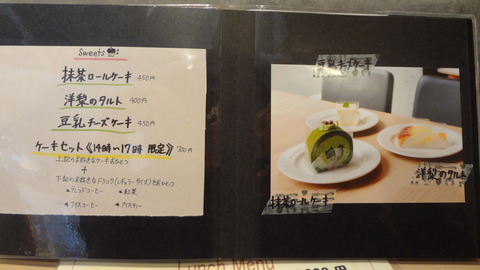 Sweets
抹茶ロールケーキ 450円
洋梨のタルト 400円
豆乳チーズケーキ 450円
ケーキセット《14時〜17時 限定》 700円
上記のお好きなケーキおひとつ
+
下記のお好きなドリンク(レギュラーサイズ)をおひとつ
▲ブレンドコーヒー ▲紅茶
◀アイスコーヒー ◀アイスティー
豆乳チーズケーキ
洋梨のタルト
抹茶ロールケーキ
Lunch Menu
円